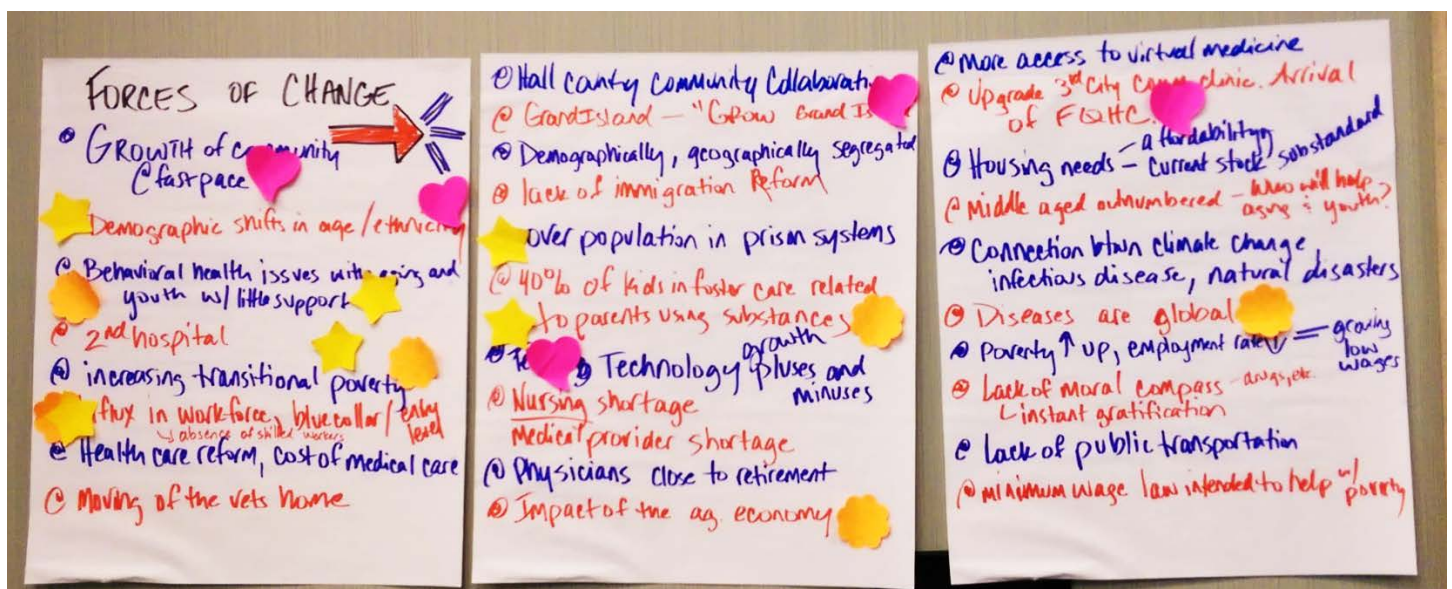 FORCES OF CHANGE
GROWTH of community
@ fast pace
Demographic shifts in age / ethnicity
Behavioral health issues with aging and
youth w/ little support
2nd hospital
increasing transitional poverty
flux in workforce, blue collar / entry
level
↳ absence of skilled workers
Health care reform, cost of medical care
Moving of the vets home
Hall County Community Collaborative
Grand Island - "Grow Grand Is
Demographically, geographically segregated
lack of immigration Reform
over population in prism systems
40% of kids in foster care related
to parents using substances
Technology growth
pluses and
minuses
Nursing shortage
Medical provider shortage
Physicians close to retirement
Impact of the ag. economy
More access to virtual medicine
Upgrade 3rd City Comm clinic. Arrival
of FQHC
Housing needs - affordability
current stock substandard
Middle aged outnumbered - who will help
aging & youth?
Connection btwn climate change,
infectious disease, natural disasters
Diseases are global
Poverty ↑ up, employment rate ↓ = growing
low
wages
Lack of moral compass - drugs, etc.
instant gratification
Lack of public transportation
minimum wage law intended to help w/
poverty